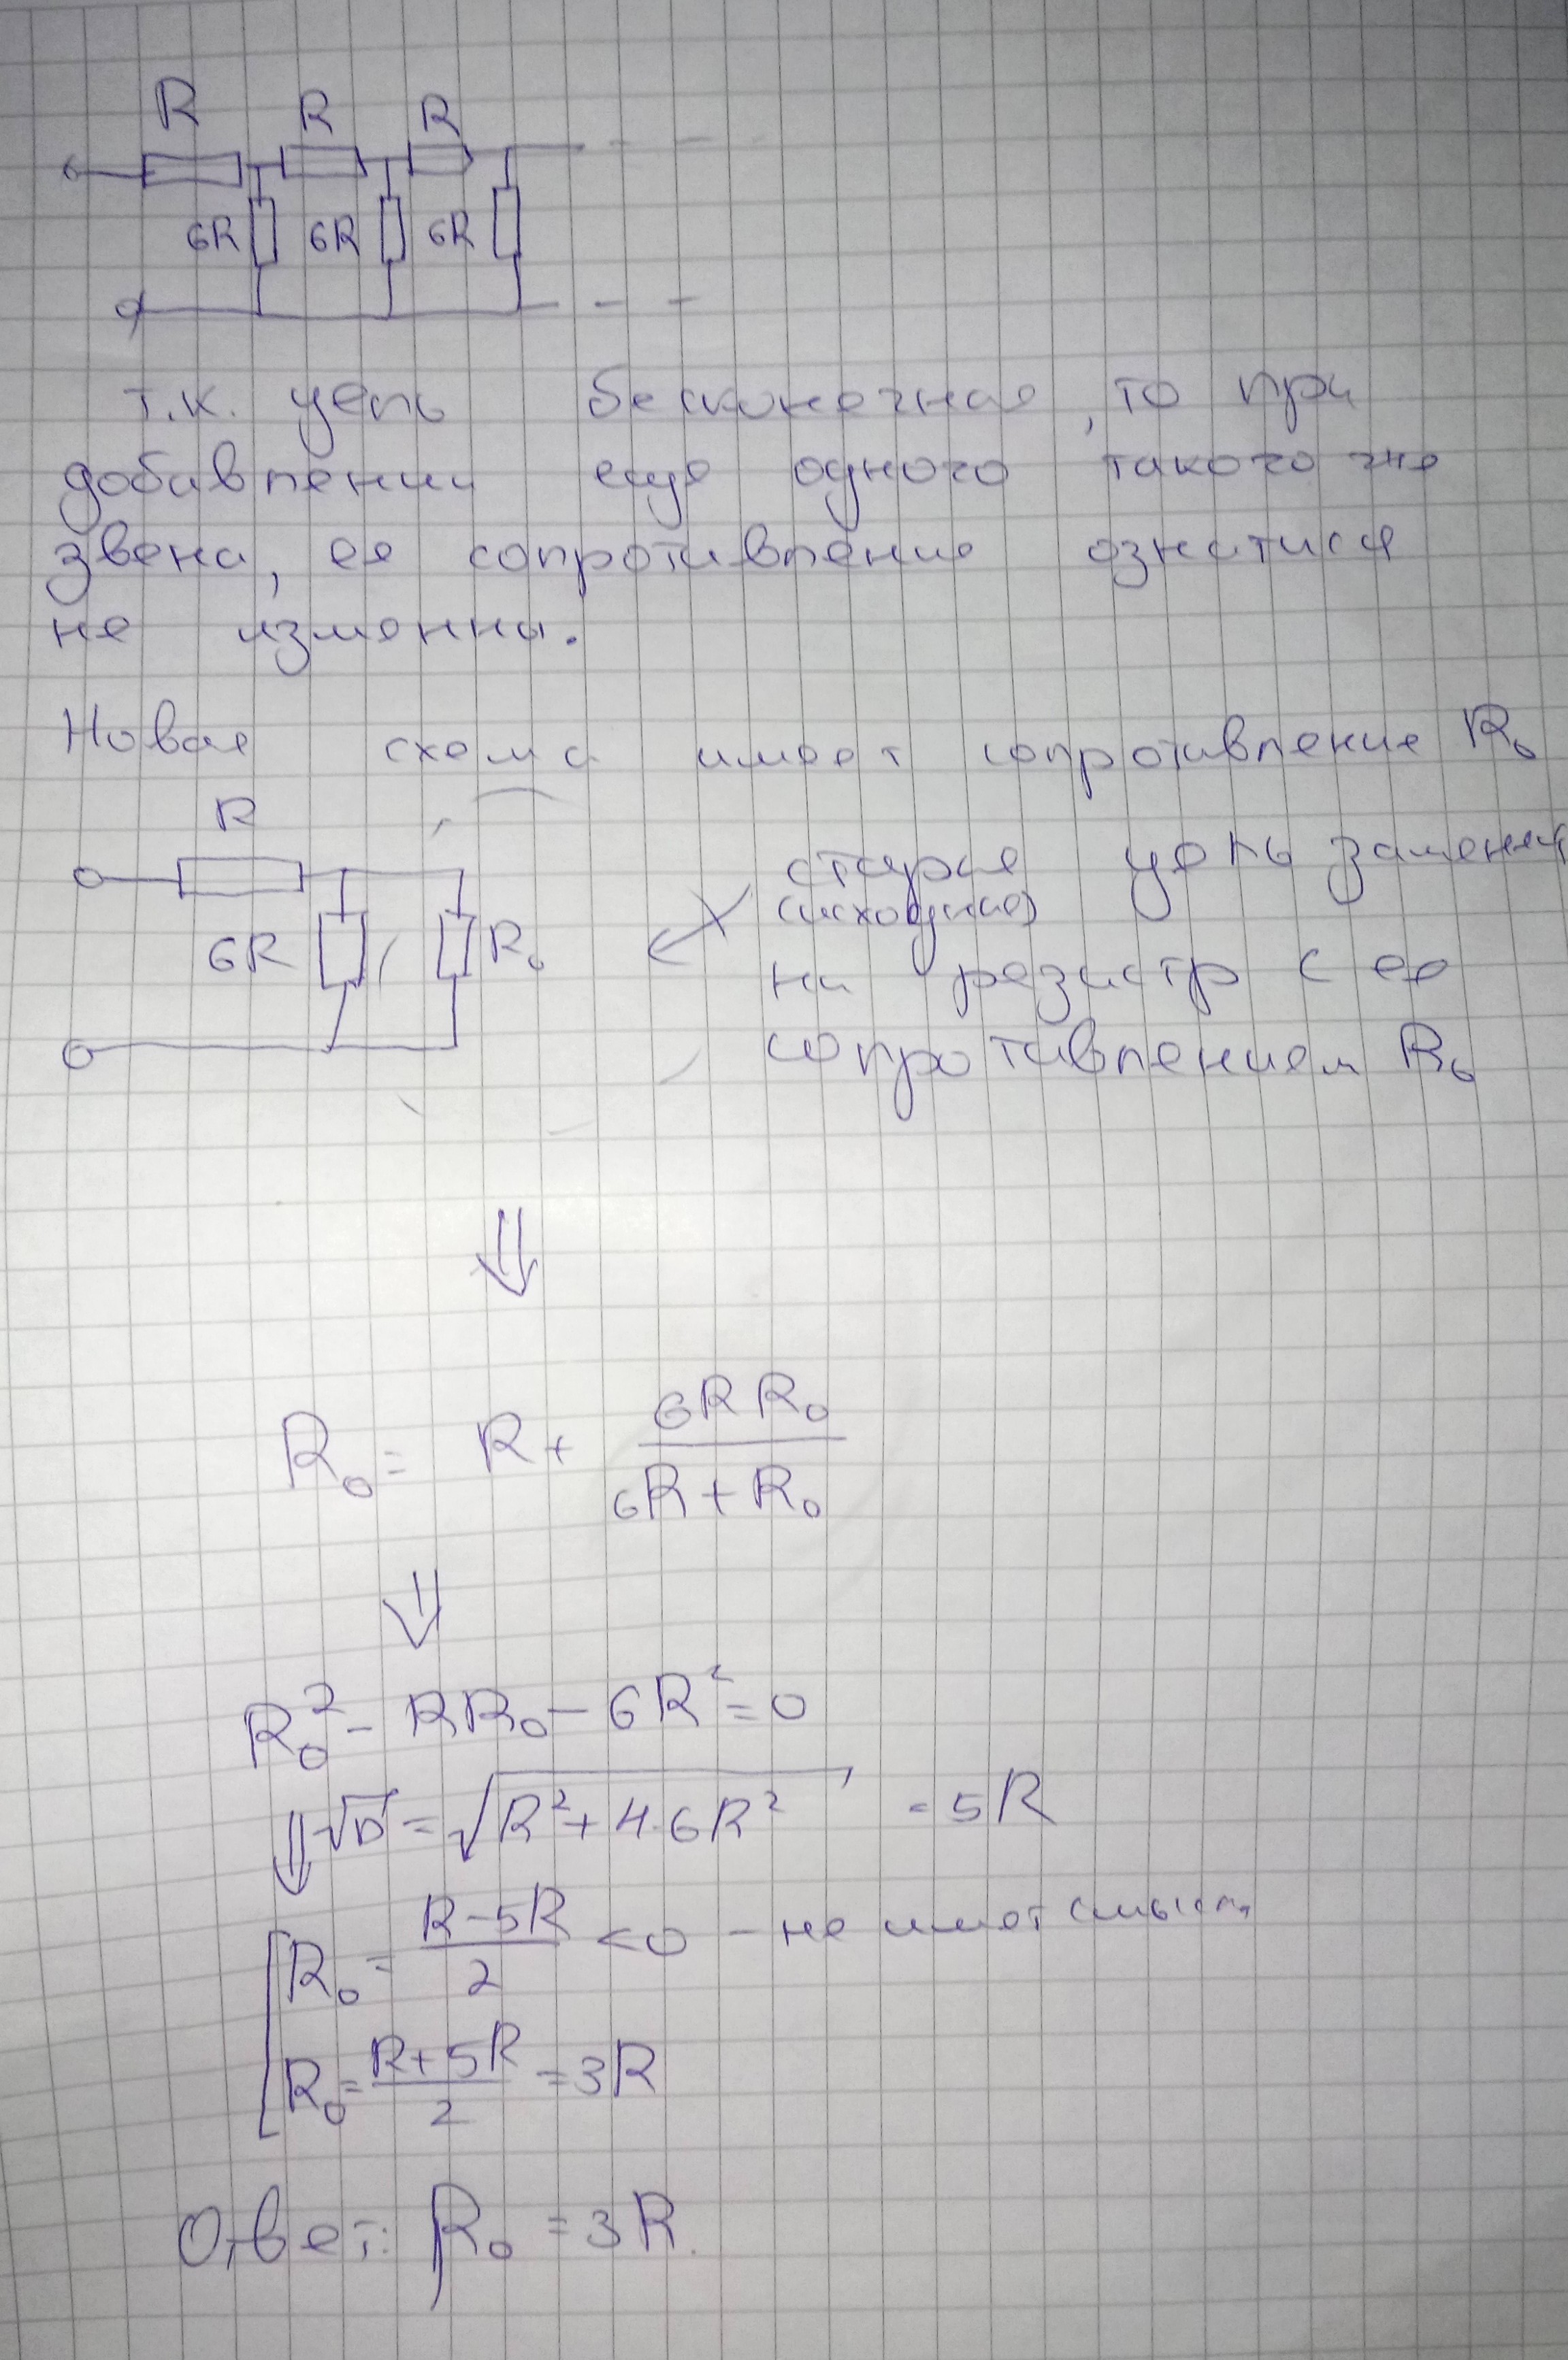 R R R
6R 6R 6R
т.к. цепь бесконечная, то при
добавлении еще одного такого же
звена, ее сопротивление
не изменны.
Новая схема имеет сопротивление R₀
R
6R R₀
старая цепь заменен
(исходная)
на резистр с ее
сопротивлением R₀
⇓
R₀ = R + 6RR₀ / (6R + R₀)
⇓
R₀² - RR₀ - 6R² = 0
⇓ √D = √(R² + 4·6R²) = 5R
R₀ = (R - 5R) / 2 < 0 - не имеет смысла
R₀ = (R + 5R) / 2 = 3R
Ответ: R₀ = 3R.